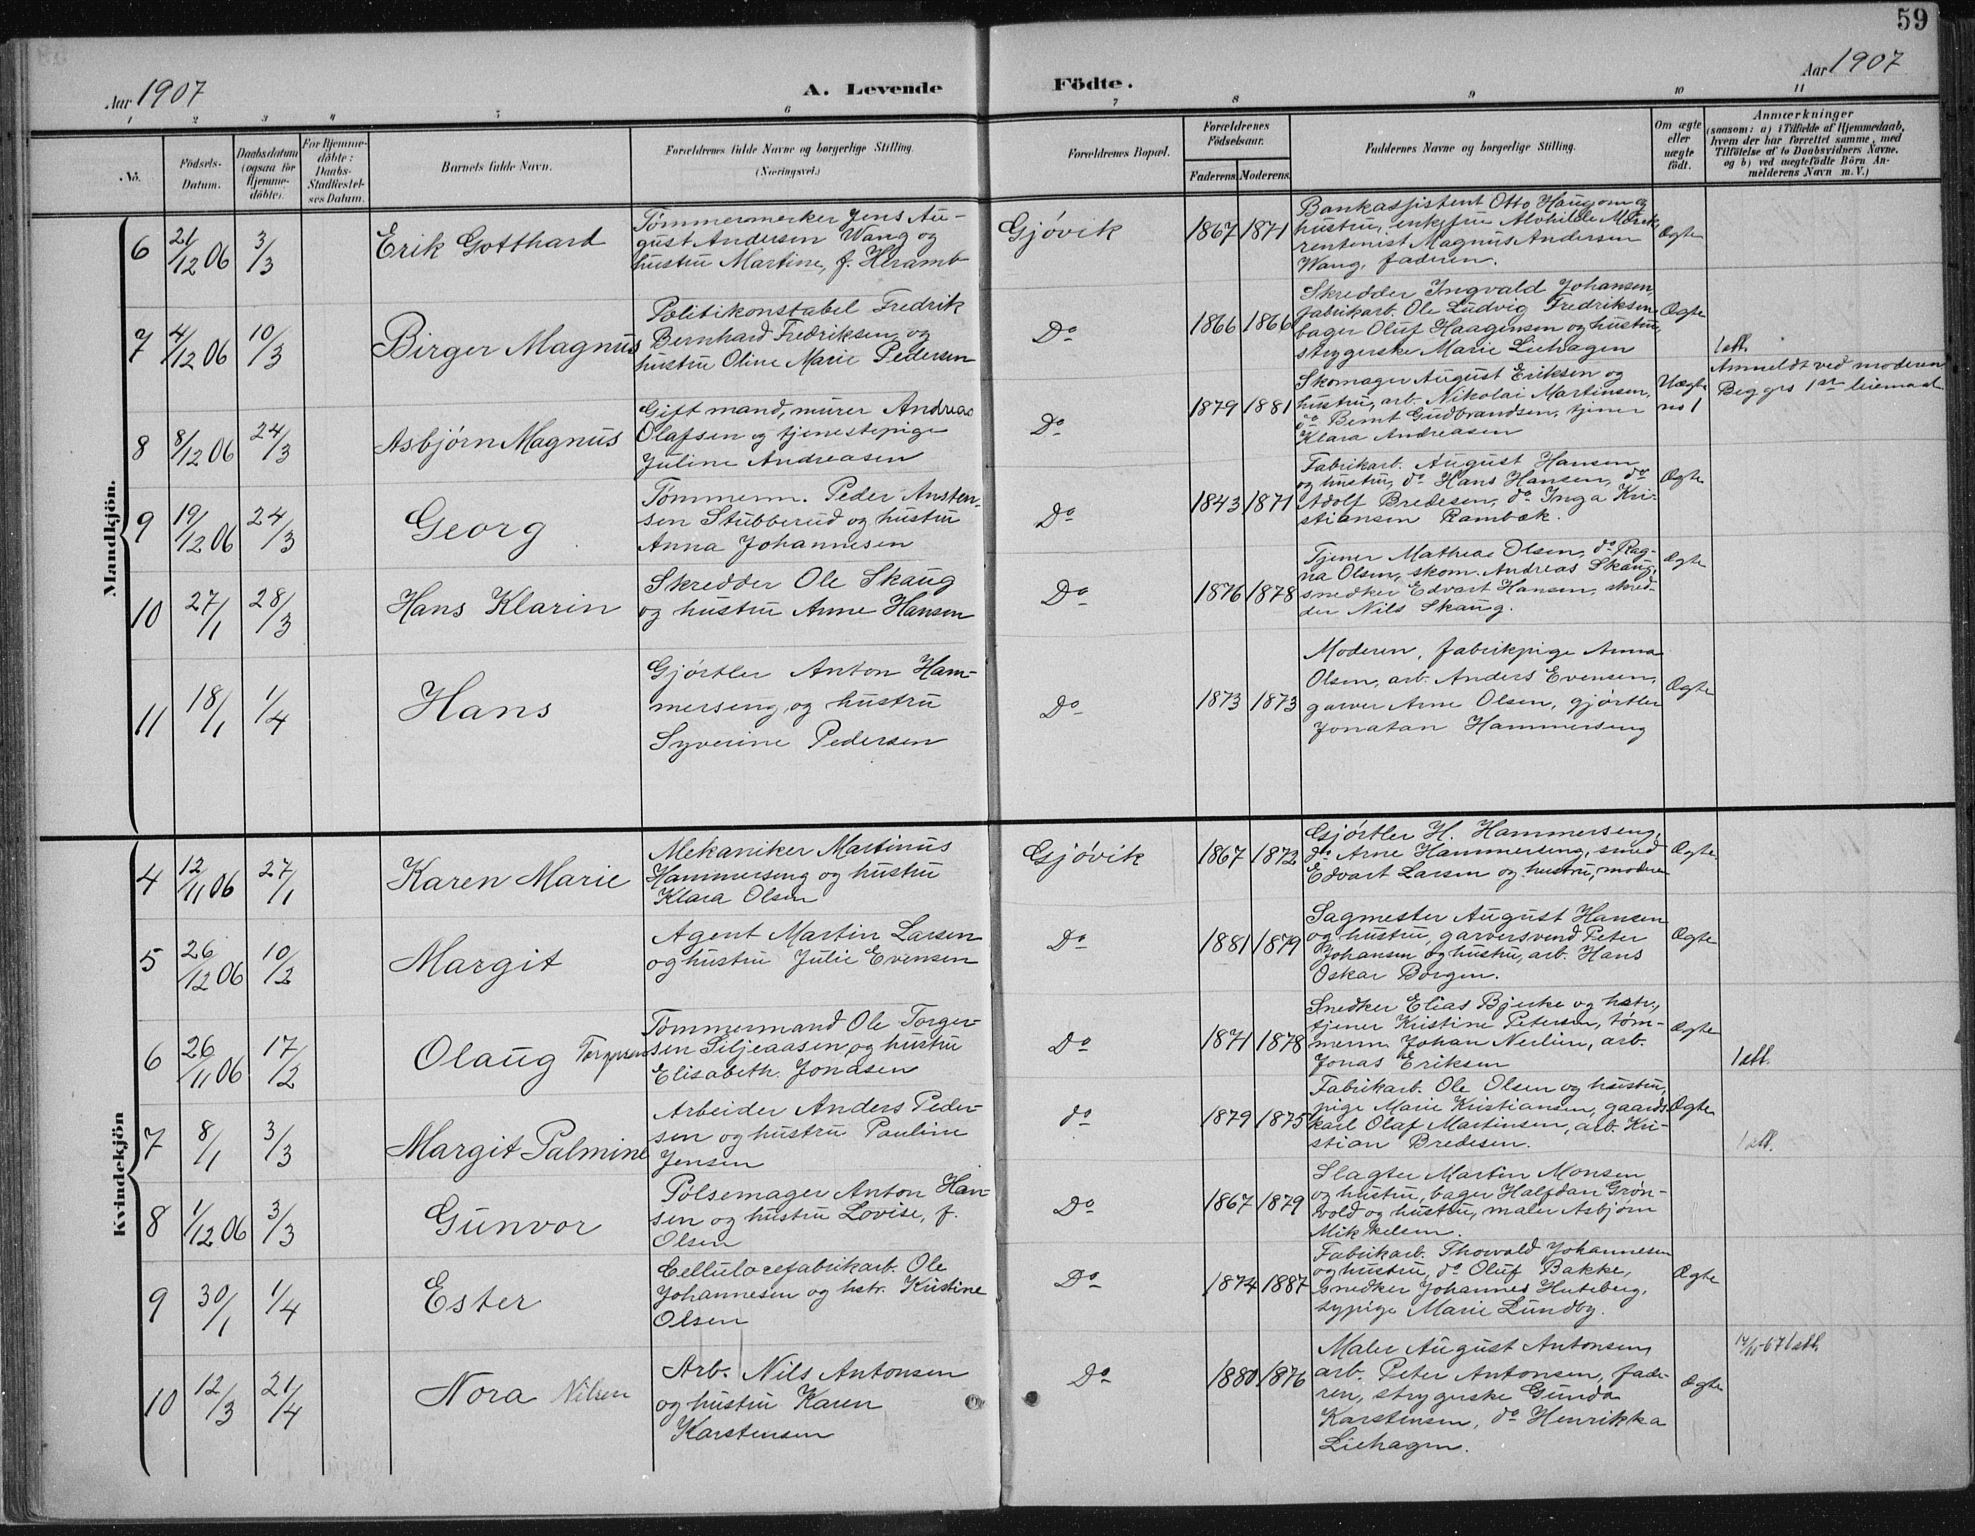 59
Aar 1907
A. Levende Födte.
Aar 1907
1 2 3 4 5 6 7 8 9 10 11
No.
Födsels-
Datum.
Daabsdatum
(ogsaa for
Hjemme-
döbte).
For Hjemme-
döbte:
Daabs-
Stadfæstel-
ses Datum.
Barnets fulde Navn.
Forældrenes fulde Navne og borgerlige Stilling.
(Næringsvei.)
Forældrenes Bopæl.
Forældrenes
Födselsaar.
Faderens. Moderens.
Faddernes Navne og borgerlige Stilling.
Om ægte
eller
uægte
födt.
Anmærkninger
(saasom: a) i Tilfælde af Hjemmedaab,
hvem der har forrettet samme, med
Tilföielse af to Daabsvidners Navne.
og b) ved uægtefödte Börn An-
melderens Navn m. V.)
Mandkjön.
6
21/12 06
3/3
Erik Gotthard
Tømmermerker Jens Au-
gust Andersen Wang og
hustru Martine, f. Heramb
Gjøvik
1867 1871
Bankassistent Otto Haugom og
hustru, enkefru Alvhilde Mørck,
rentenist Magnus Andersen
Wang, faderen.
Ægte
7
4/12 06
10/3
Birger Magnus
Politikonstabel Fredrik
Bernhard Fredriksen og
hustru Oline Marie Pedersen
Do
1866 1866
Skredder Ingvald Johansen,
fabrikarb. Ole Ludvig Fredriksen,
bager Oluf Haagensen og hustru,
strygerske Marie Liehagen
Ægte
1 att.
8
8/12 06
24/3
Asbjørn Magnus
Gift mand, murer Andreas
Olafsen og tjenestepige
Juline Andreasen
Do
1879 1881
Skomager August Eriksen og
hustru, arb. Nikolai Martinsen,
do Bernt Gudbrandsen, tjener
Klara Andreasen
Uægte
no 1
Anmeldt ved moderen
Begges 1ste leiemaal
9
19/12 06
24/3
Georg
Tømmerm. Peder Ansten-
sen Stubberud og hustru
Anna Johannesen
Do
1843 1871
Fabrikarb. August Hansen
og hustru, do Hans Hansen, do
Adolf Bredesen, do Inga Kri-
stiansen Rambæk.
Ægte
10
27/1
28/3
Hans Klarin
Skredder Ole Skaug
og hustru Anne Hansen
Do
1876 1878
Tjener Mathea Olsen, do Rag-
na Olsen, skom. Andreas Skaug,
snedker Edvart Hansen, skred-
der Nils Skaug.
Ægte
11
18/1
1/4
Hans
Gjørtler Anton Ham-
merseng og hustru
Syverine Pedersen
Do
1873 1873
Moderen, fabrikpige Anna
Olsen, arb. Anders Evensen,
garver Arne Olsen, gjørtler
Jonatan Hammerseng
Ægte
Kvindekjön
4
12/11 06
27/1
Karen Marie
Mekaniker Martinus
Hammerseng og hustru
Klara Olsen
Gjøvik
1867 1872
Gjørtler H. Hammerseng,
do Arne Hammerseng, smed
Edvart Larsen og hustru, moderen
Ægte
5
26/12 06
10/2
Margit
Agent Martin Larsen
og hustru Julie Evensen
Do
1881 1879
Sagmester August Hansen
og hustru, garversvend Peter
Johansen og hustru, arb. Hans
Oskar Borgen.
Ægte
6
26/11 06
17/2
Olaug Torgersen
Tømmermand Ole Torger-
sen Siljeaasen og hustru
Elisabeth Jonasen
Do
1871 1878
Snedker Elias Bjerke og hstr.,
tjener Kristine Petersen, tøm-
merm. Johan Neilin, arb.
Jonas Eriksen
Ægte
1 att.
7
8/1
3/3
Margit Palmine
Arbeider Anders Peder-
sen og hustru Pauline
Jensen
do
1879 1875
Fabrikarb. Ole Olsen og hustru,
pige Marie Kristiansen, gaards-
karl Olaf Martinsen, arb. Kri-
stian Bredesen.
Ægte
1 att.
8
1/12 06
3/3
Gunvor
Pølsemager Anton Han-
sen og hustru Lovise, f.
Olsen
Do
1867 1879
Slagter Martin Monsen
og hustru, bager Halfdan Grøn-
vold og hustru, maler Asbjørn
Mikkelsen.
9
30/1
1/4
Ester
Cellulosefabrikarb. Ole
Johannesen og hstr. Kristine
Olsen
Do
1874 1887
Fabrikarb. Thorvald Johannesen
og hustru, do Oluf Bakke,
snedker Johannes Huteberg,
sypige Marie Lundby.
Ægte
10
12/3
21/4
Nora Nilsen
Arb. Nils Antonsen
og hustru Karen
Karstensen
Do
1880 1876
Maler August Antonsen,
arb. Peter Antonsen, fade-
ren, strygerske Gunda
Karstensen, do Henrikka
Liehagen.
Ægte